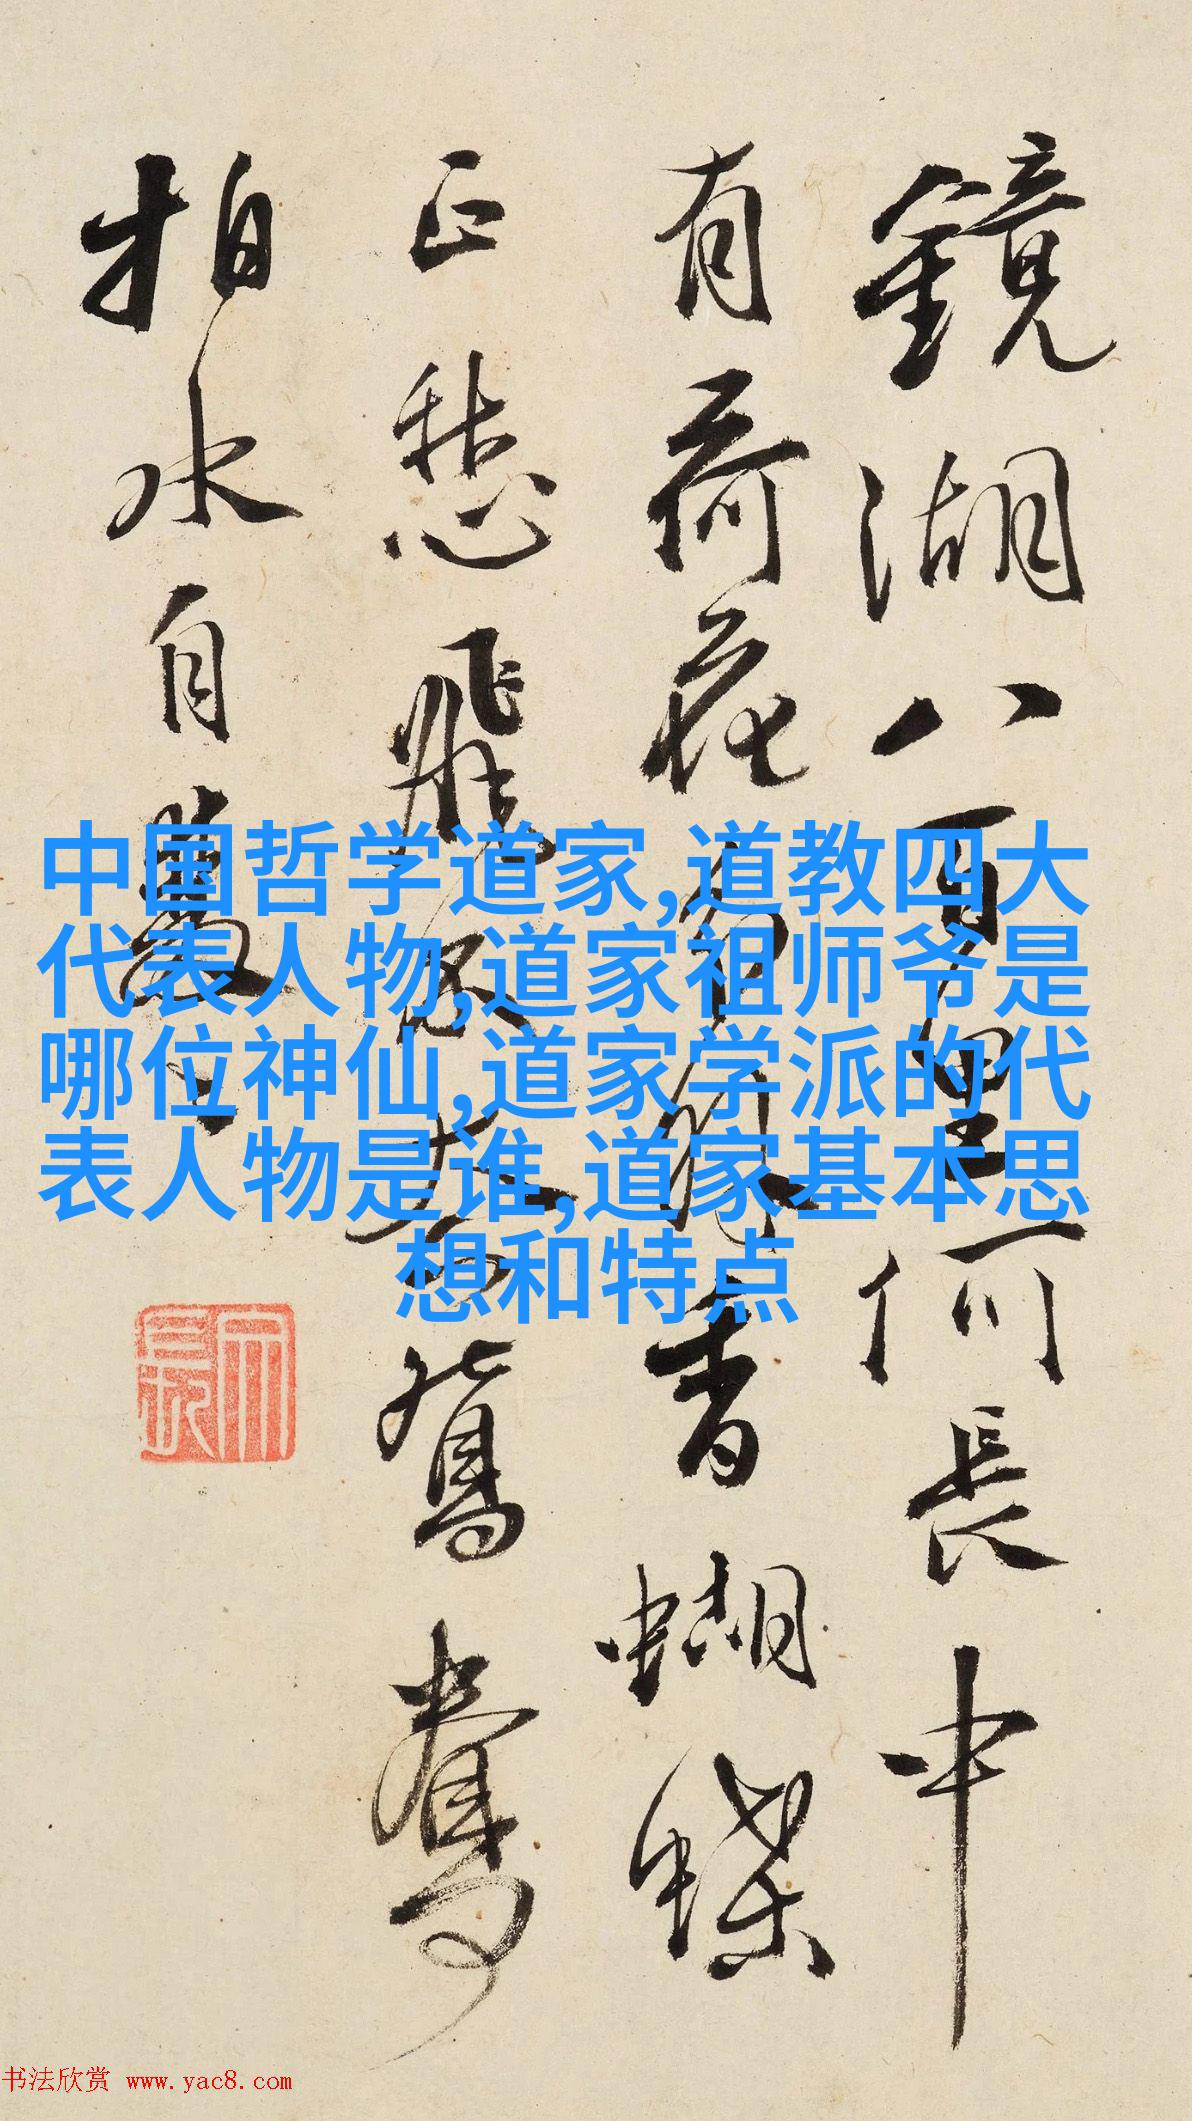 鏡湖八百里何長中
有荷花香蝴蝶
正愁飛鴛鴦
拍水自
中国哲学道家,道教四大
代表人物,道家祖师爷是
哪位神仙,道家学派的代
表人物是谁,道家基本思
想和特点
书法欣赏 www.yac8.com